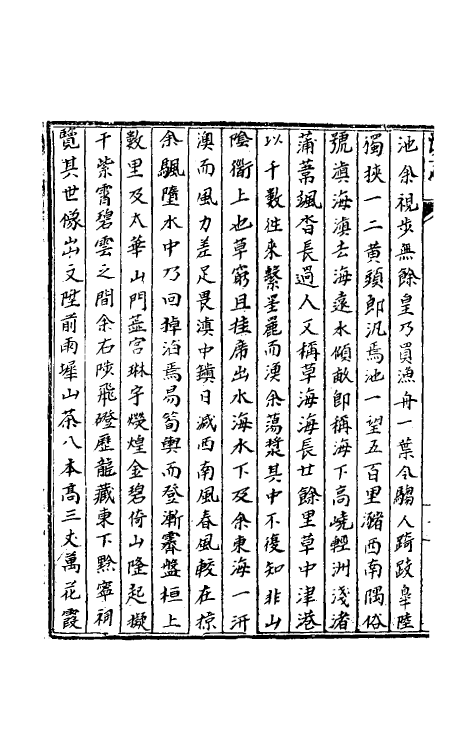 池余視步無餘皇乃買漁舟一葉令騶人踦跂皐陸
獨挾一二黄頭郎汎焉池一望五百里瀦西南隅俗
號滇海滇去海遠水傾畝即稱海下高嶢輕洲淺渚
蒲蒿颯沓長過人又稱草海海長廿餘里草中津港
以千數徃來繫罣罹而漫余蕩槳其中不復知非山
陰衢上也草窮且挂席出水海水下及余東海一汧
澳而風力差足畏滇中鎮日減西南風春風較在掠
余颿墮水中乃回掉沿焉易筍輿而登漸霽盤桓上
數里及太華山門葢宫琳宇煅煌金碧倚山隆起擬
干紫霄碧雲之間余右陟飛磴歷龍藏東下黔寧祠
覽其世像出文陛前兩墀山茶八本高三丈萬花霞